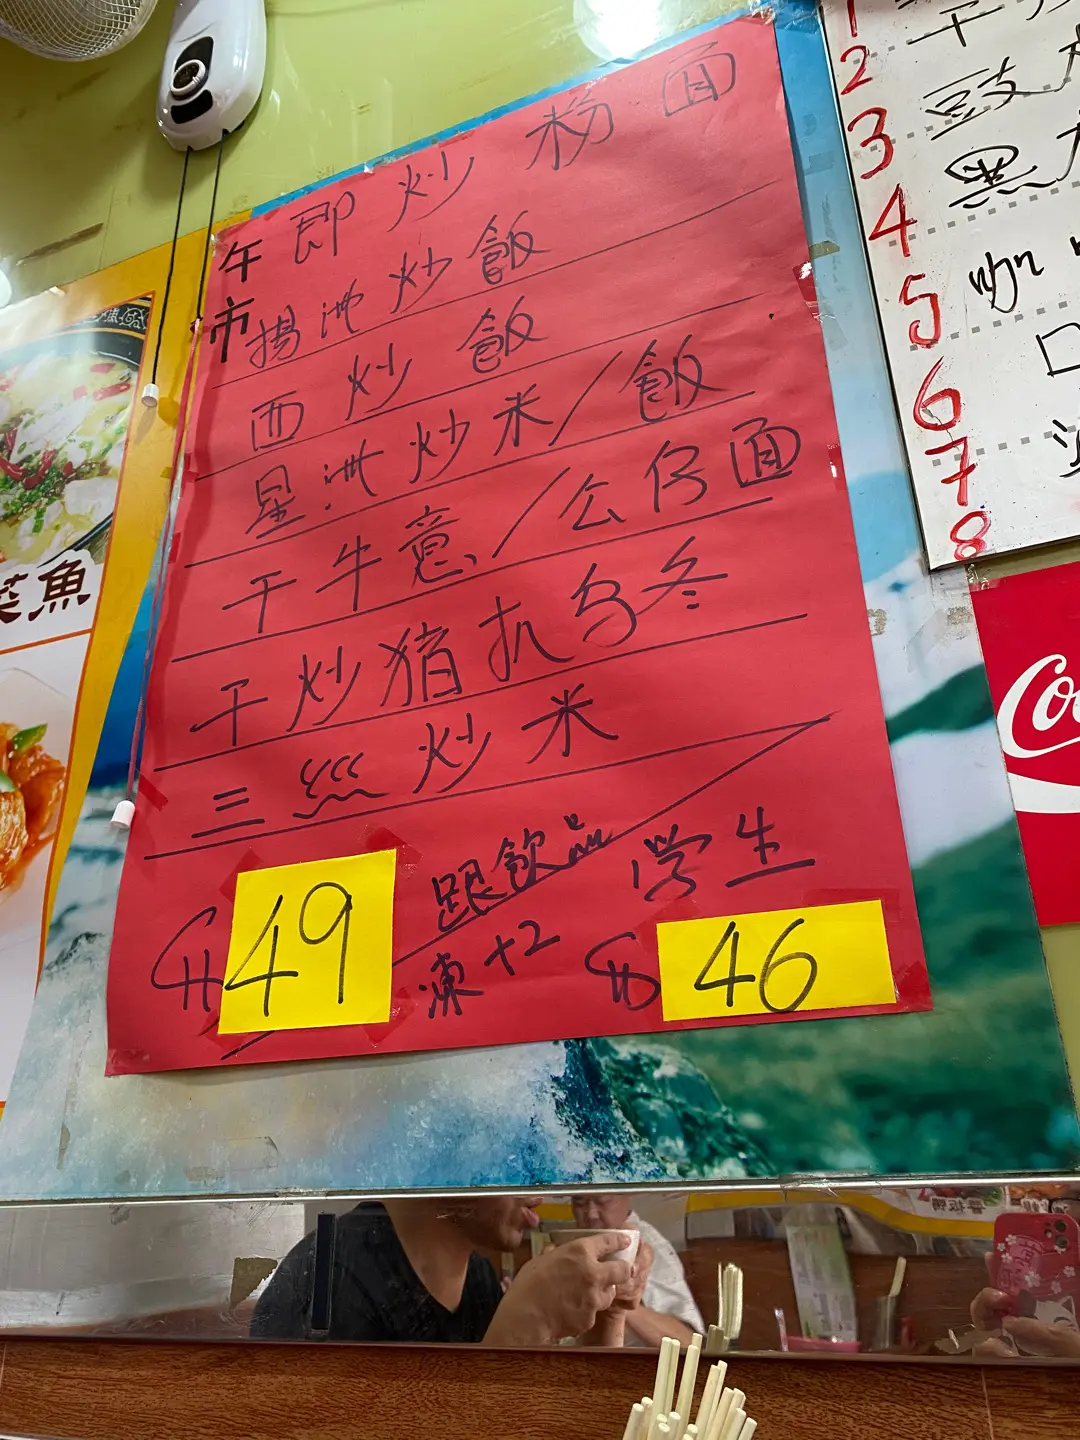 午市
即炒粉面
揚洲炒飯
西炒飯
星洲炒米/飯
干牛意/公仔面
干炒猪扒乌冬
三丝炒米
跟飲品
凍+2
学生
49
46
菜魚
1 干
2 豉
3 黑
4
5
6
7
8